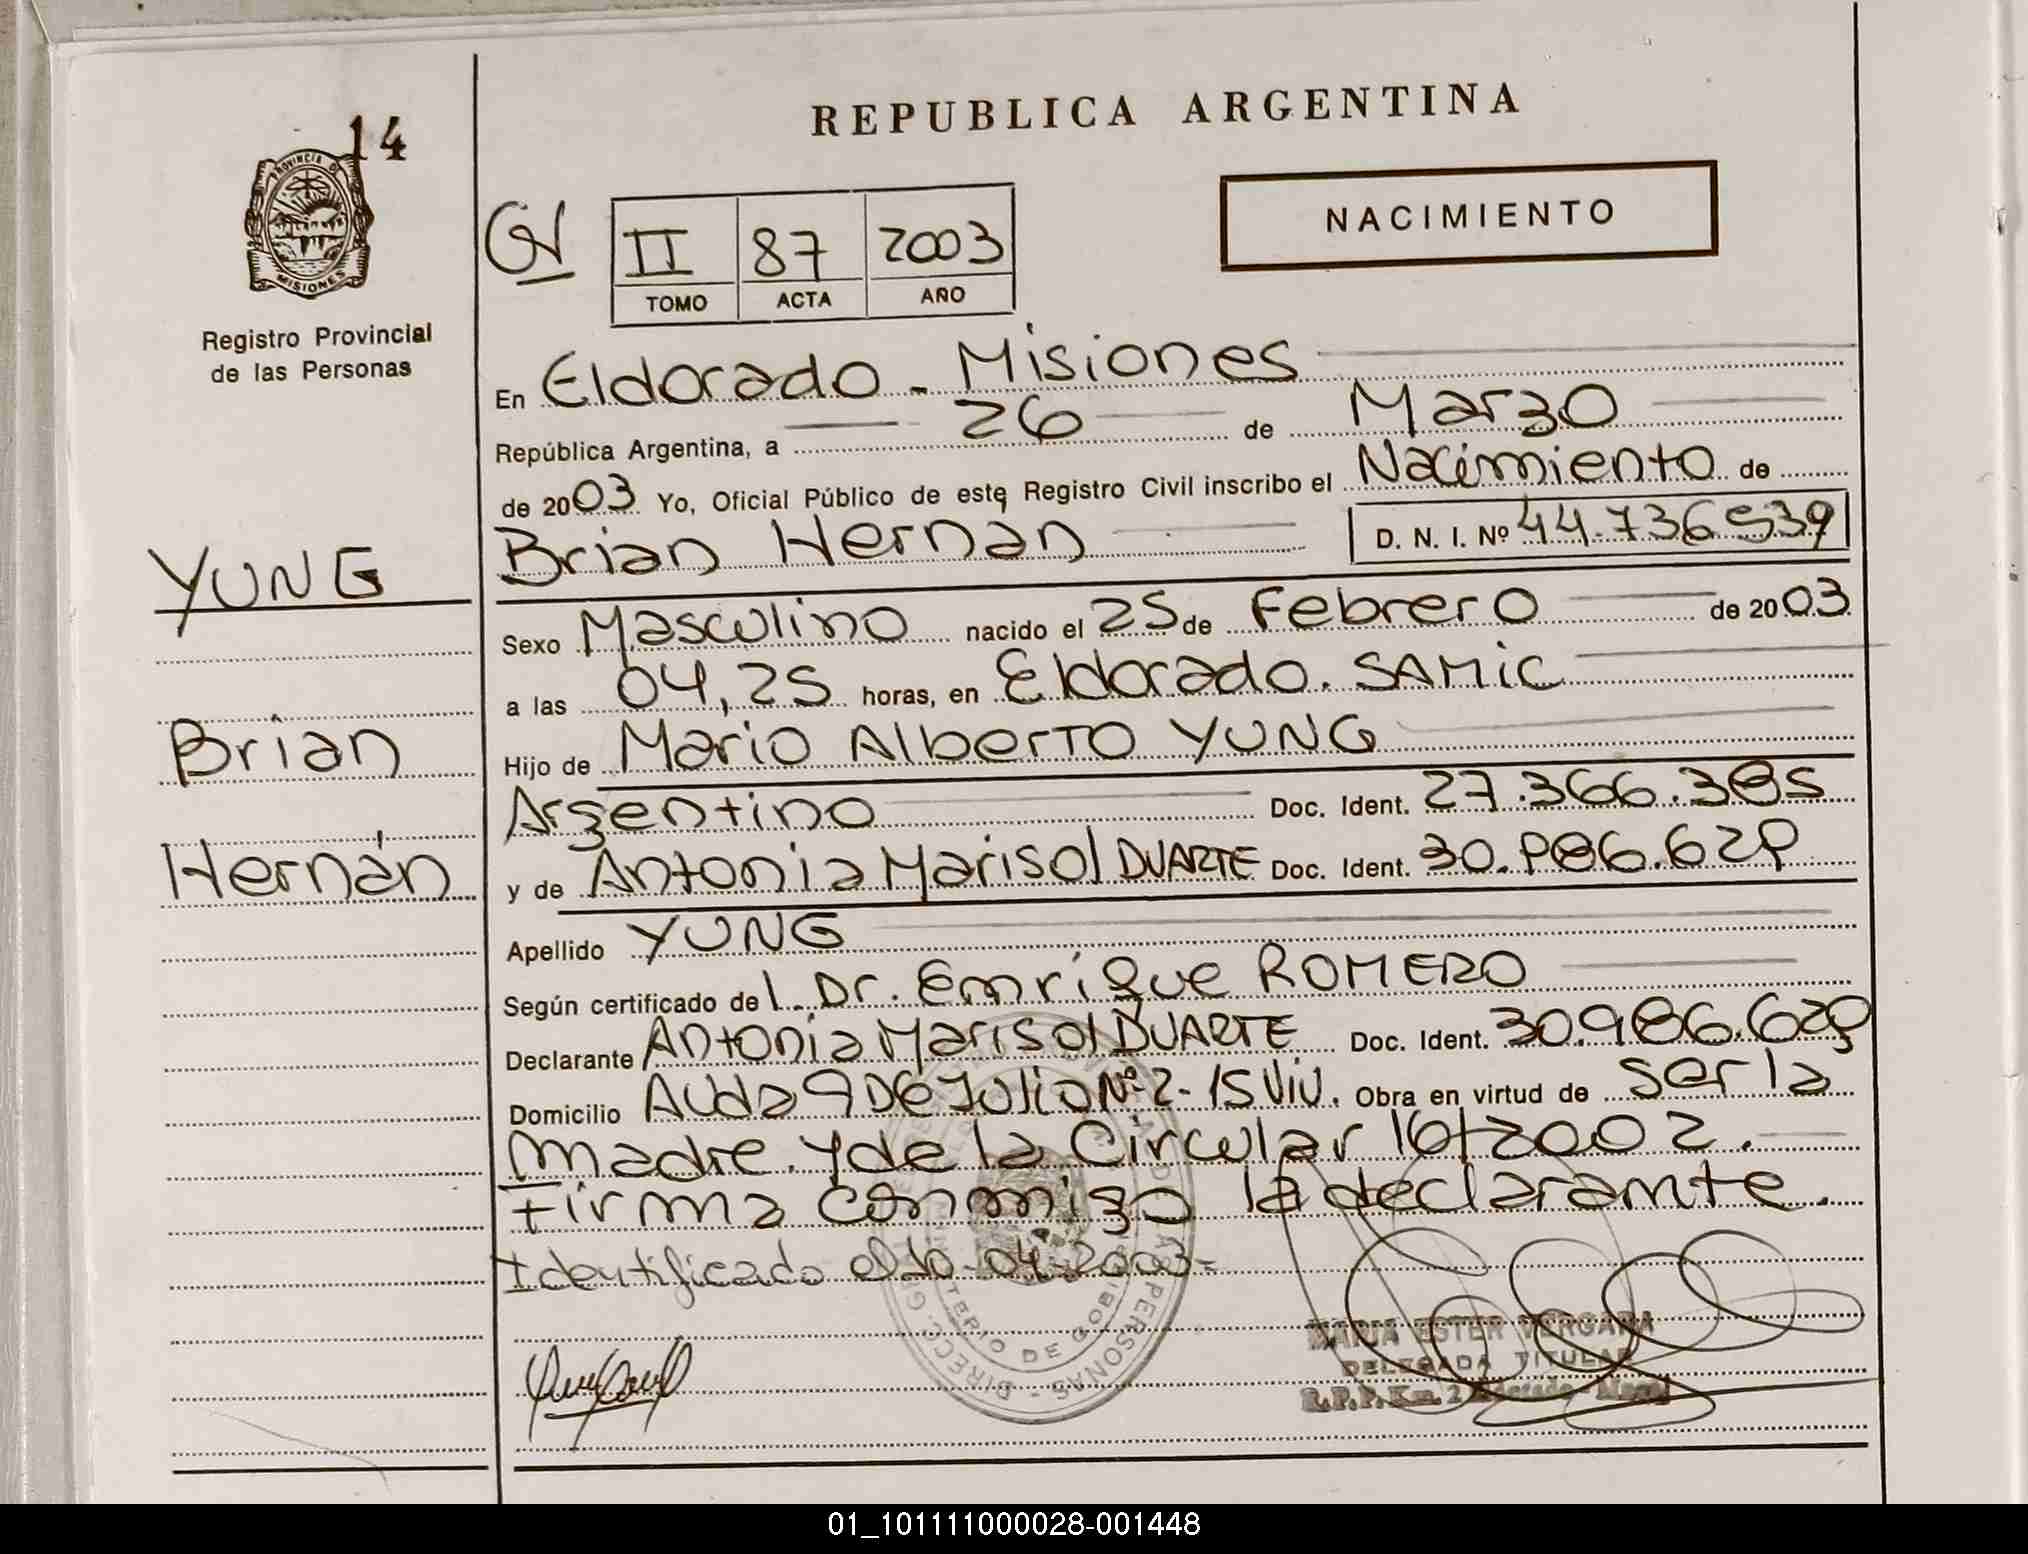 14
PROVINCIA DE
MISIONES
Registro Provincial
de las Personas
YUNG
Brian
Hernán
REPUBLICA ARGENTINA
NACIMIENTO
II 87 2003
TOMO ACTA AÑO
En Eldorado - Misiones
República Argentina, a 26 de Marzo
de 2003 Yo, Oficial Público de este Registro Civil inscribo el Nacimiento de
Brian Hernán D. N. I. Nº 44.736539
Sexo Masculino nacido el 25 de Febrero de 2003
a las 04,25 horas, en Eldorado. SAMIC
Hijo de Mario Alberto YUNG
Argentino Doc. Ident. 27.366.385
y de Antonia Marisol DUARTE Doc. Ident. 30.986.629
Apellido YUNG
Según certificado del Dr. Enrique ROMERO
Declarante Antonia Marisol DUARTE Doc. Ident. 30.986.629
Domicilio Avda 9 De Julio Nº 2 - 15 Viv. Obra en virtud de ser la
madre y de la Circular 16/2002.
Firma conmigo la declarante.
Identificado el 10-04-2003-
MARIA ESTER VERGARA
DELEGADA TITULAR
R.P.P. Km. 2 Eldorado - Mnes
01_101111000028-001448